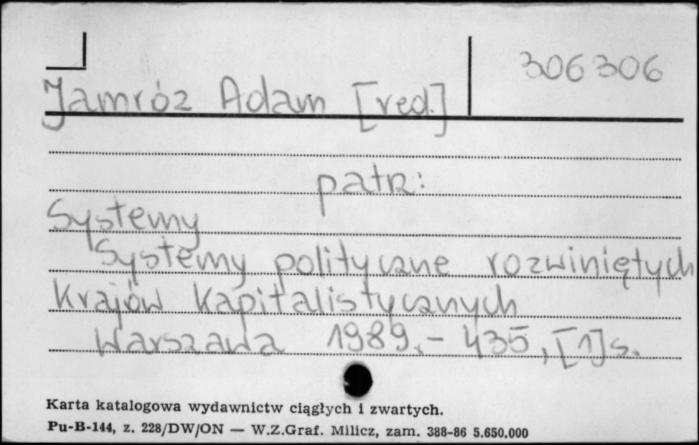 306306
Jamróz Adam [red.]
patrz:
Systemy
Systemy polityczne rozwiniętych
krajów kapitalistycznych
Warszawa 1989.- 435, [1] s.
Karta katalogowa wydawnictw ciągłych i zwartych.
Pu-B-144, z. 228/DW/ON — W.Z.Graf. Milicz, zam. 388-86 5.650,000